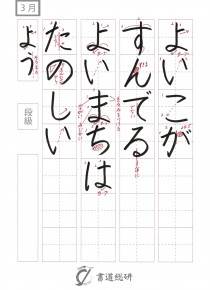 3月
よいこが
すんでる
よいまちは
たのしい
よう
段級
書道総研